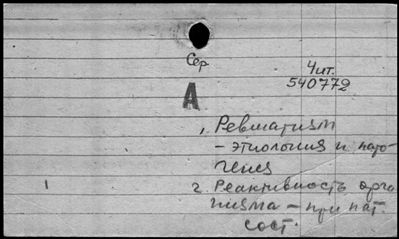 Сер
Чит.
540772
А
1. Ревматизм
- этиология и пато-
генез
2. Реактивность орга
низма - при пат.
сост.